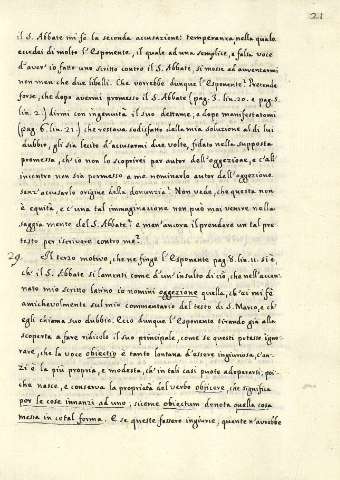 21
il S. Abbate mi fà la seconda accusazione: temperanza, nella quale
eccedei di molto l'Esponente, il quale ad una semplice, e falsa voce
d'aver' io fatto uno scritto contro il S. Abbate, si mosse ad avventarmi
non men che due libelli. Che vorrebbe dunque l'Esponente? Pretende
forse, che dopo avermi promesso il S. Abbate (pag. 5. lin. 20. e pag. 5.
lin. 2.) dirmi con ingenuità il suo dettame, e dopo manifestatomi
(pag. 6. lin. 21.) che restava sodisfatto dalla mia soluzione al di lui
dubbio, gli sia lecito d'accusarmi due volte, fidato nella supposta
promessa, ch' io non lo scoprirei per autor dell'oggezione, e c'all'
incontro non sia permesso a me nominarlo autor dell'oggezione
senz'accusarlo origine della donunzia? Non vede, che questa non
è equità, e c'una tal immaginazione non può mai venire nella
saggia mente del S. Abbate? e men'ancora il prendere un tal pre-
testo per iscrivere contro me?
29. Il terzo motivo, che ne finge l'Esponente pag. 8. lin. 11. si è,
ch' il S. Abbate si lamenti come d'un' insulto di ciò, che nell'accen-
nato mio scritto latino io nomini oggezione quella, ch'ei mi fè
amichevolmente sul mio commentario del testo di S. Marco, e ch'
egli chiama suo dubbio. Ecco dunque l'Esponente tirando giù alla
scoperta a fare ridicolo il suo principale, come se questi potesse igno-
rare, che la voce obiectio è tanto lontana d'essere ingiuriosa, c'an-
zi è la più propria, e modesta, ch'in tali casi puote adoperarsi, poi-
che nasce, e conserva la proprietà del verbo obijcere, che significa
por le cose innanzi ad uno; sicome obiectum denota quella cosa
messa in cotal forma. E se queste fossero ingiurie, quante n'avrebbe